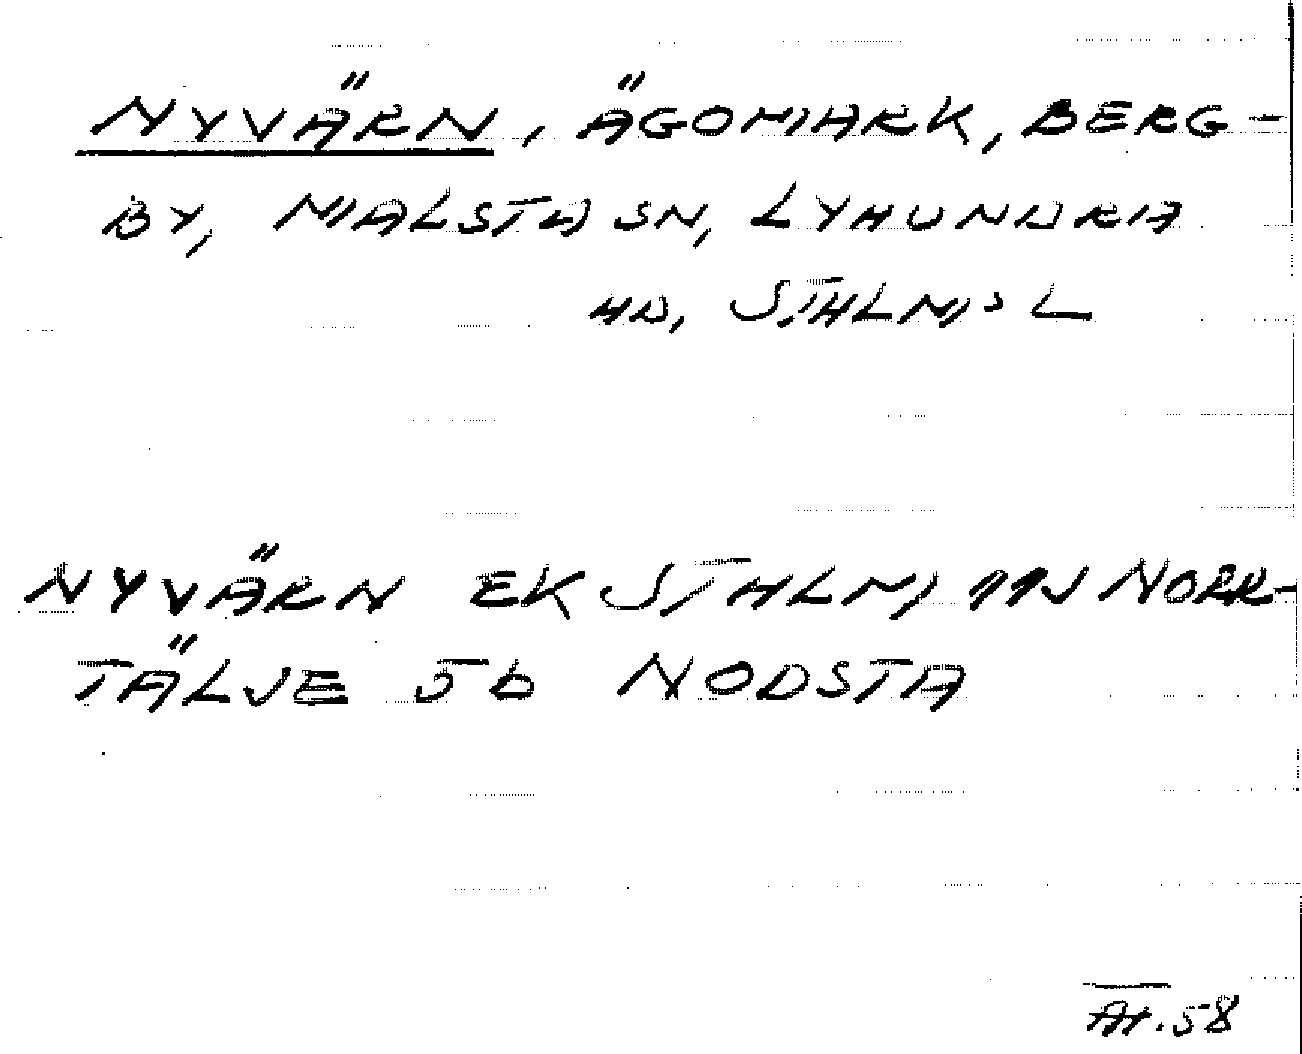 NYVÄRN, ÄGOMARK, BERG-
BY, MALSTA SN, LYHUNDRA
HD, STHLMS L
NYVÄRN EK STHLM 11J NORR-
TÄLJE 5b NODSTA
58